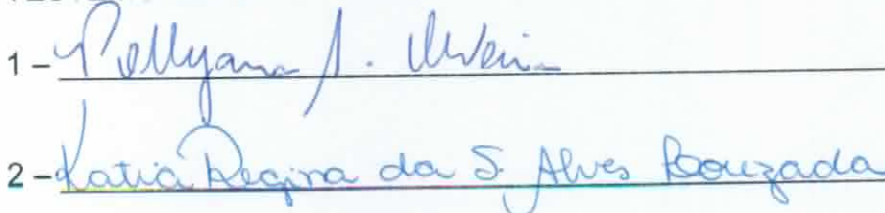 1 – Pollyana S. Oliveira
2 – Katia Regina da S. Alves Bouzada